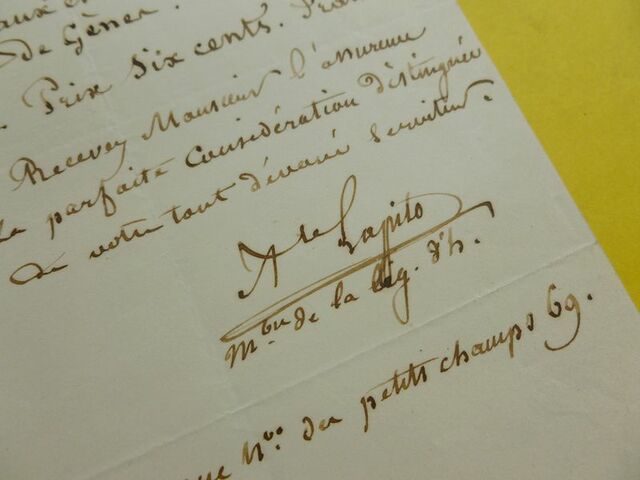 de Gênes.
Prix Six cents. Fran
Recevez Monsieur l'assurance
la parfaite considération distinguée
de votre tout dévoué serviteur.
Ate Lapito
Mbre de la Lég. d'h.
rue Nve des petits champs 69.